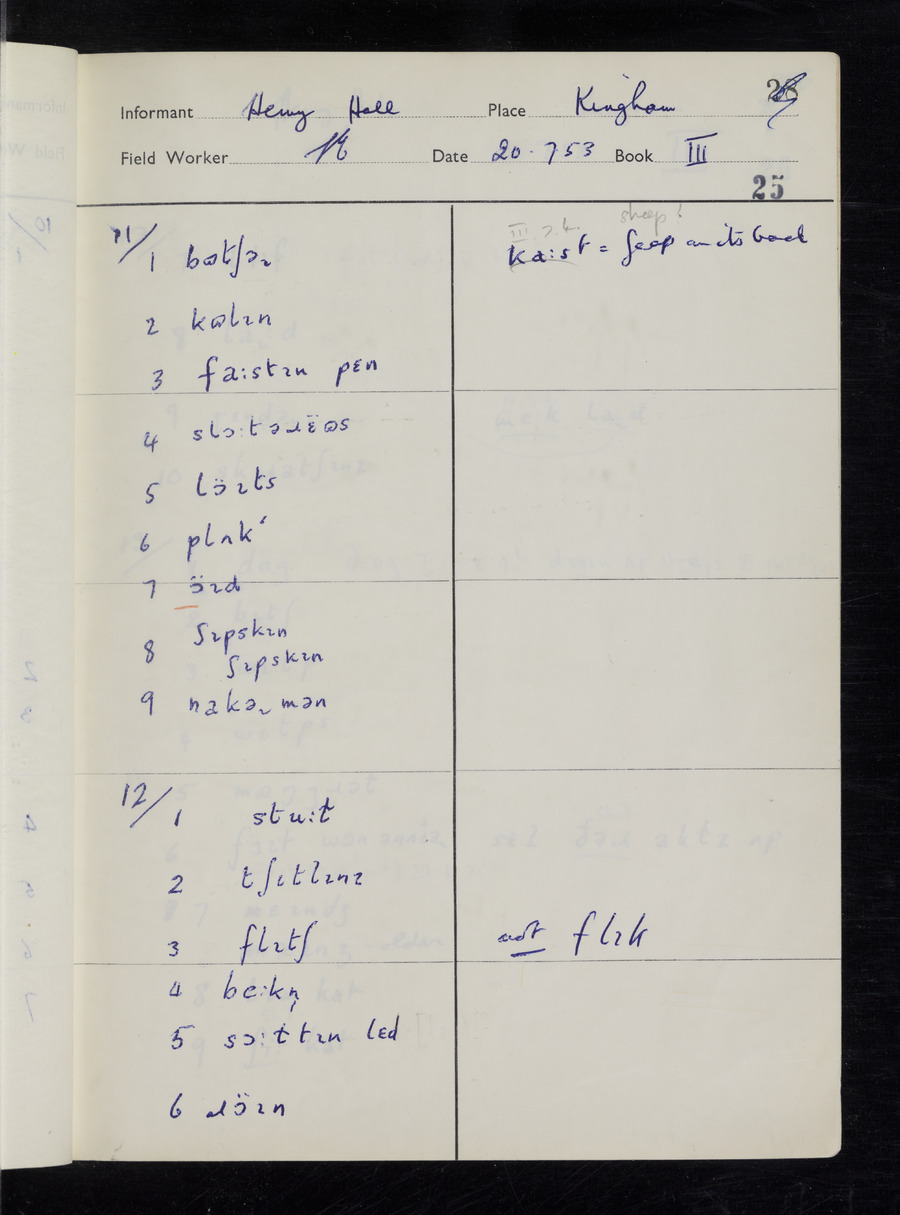 Informant Henry Hall Place Kingham
Field Worker Date 20.7.53 Book III
25
11/
1 bɷtʃəɹ
2 kɷlɪn
3 fa:stɪn pɛn
4 slɔ:təɹɛ̈ɷs
5 lɔ̈ɪts
6 plʌk
7 ɔ̈ɪd
8 ʃɪpskɪn
ʃɪpskɪn
9 nakəɹ mən
12/
1 stu:t
2 tʃɪtlɪnz
3 flɪtʃ
4 be:kŋ̩
5 sɔ:ttɪn lɛd
6 ɹɔ̈ɪn
sheep?
ka:st = on its back
not flɪk